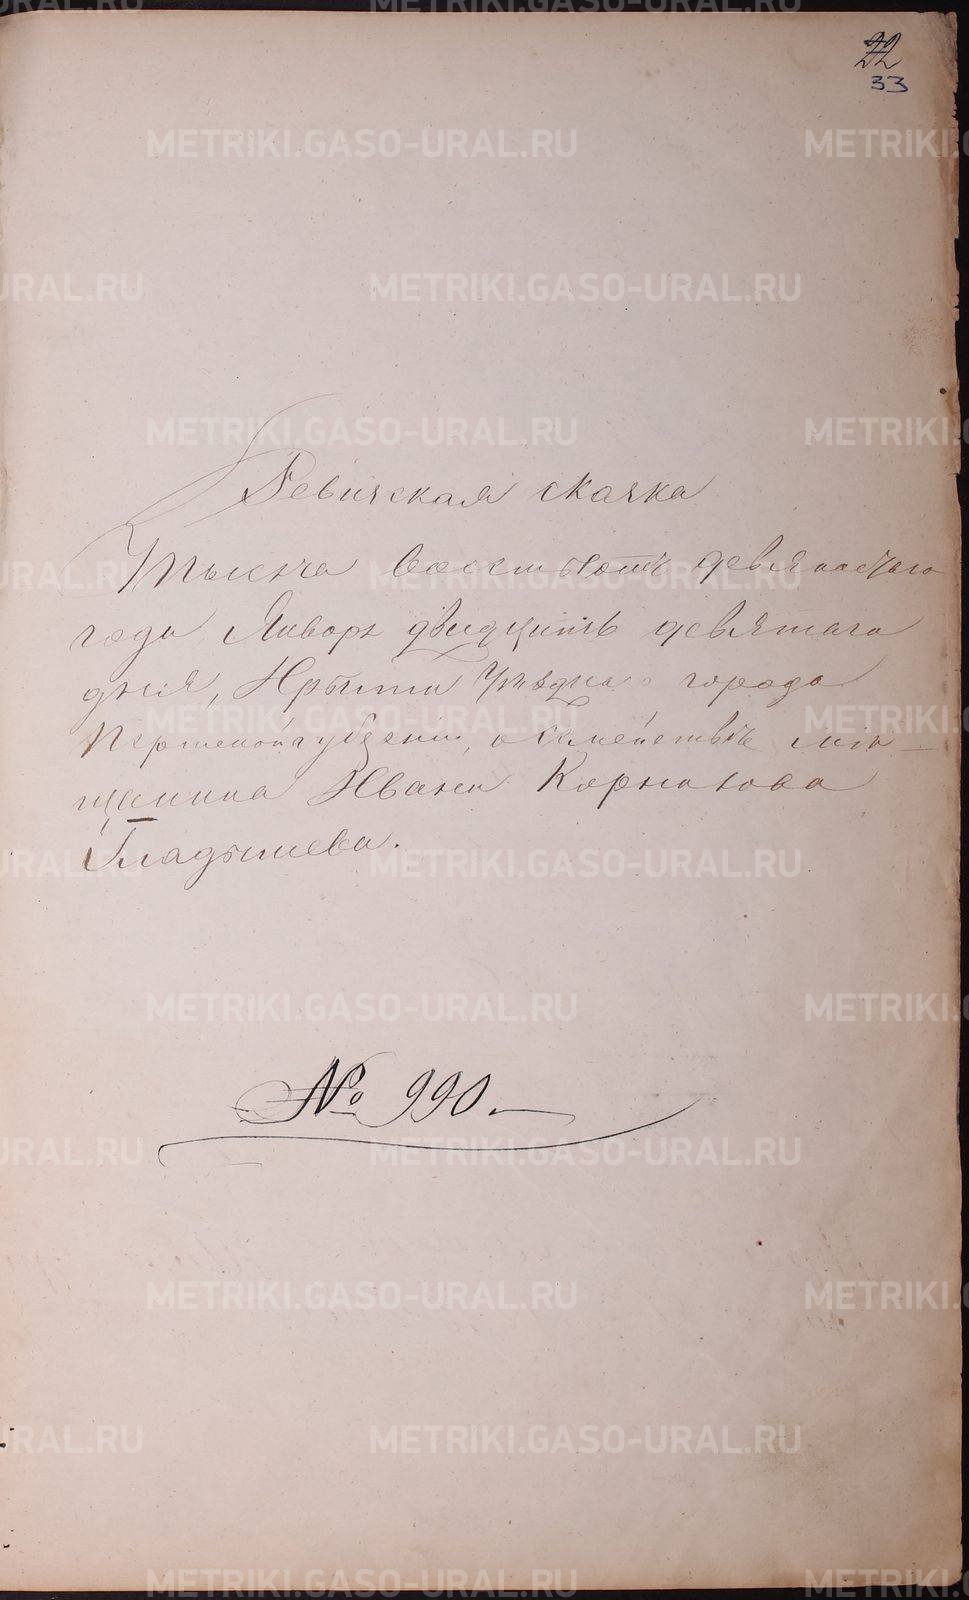 22
33
Ревизская сказка
Тысяча восемьсотъ девяностаго
года Января двадцать девятаго
дня, Ирбити Уѣзднаго города
Пермской губерніи, о семействѣ мѣ-
щанина Ивана Корнилова
Гладышева.
№ 990.
METRIKI.GASO-URAL.RU